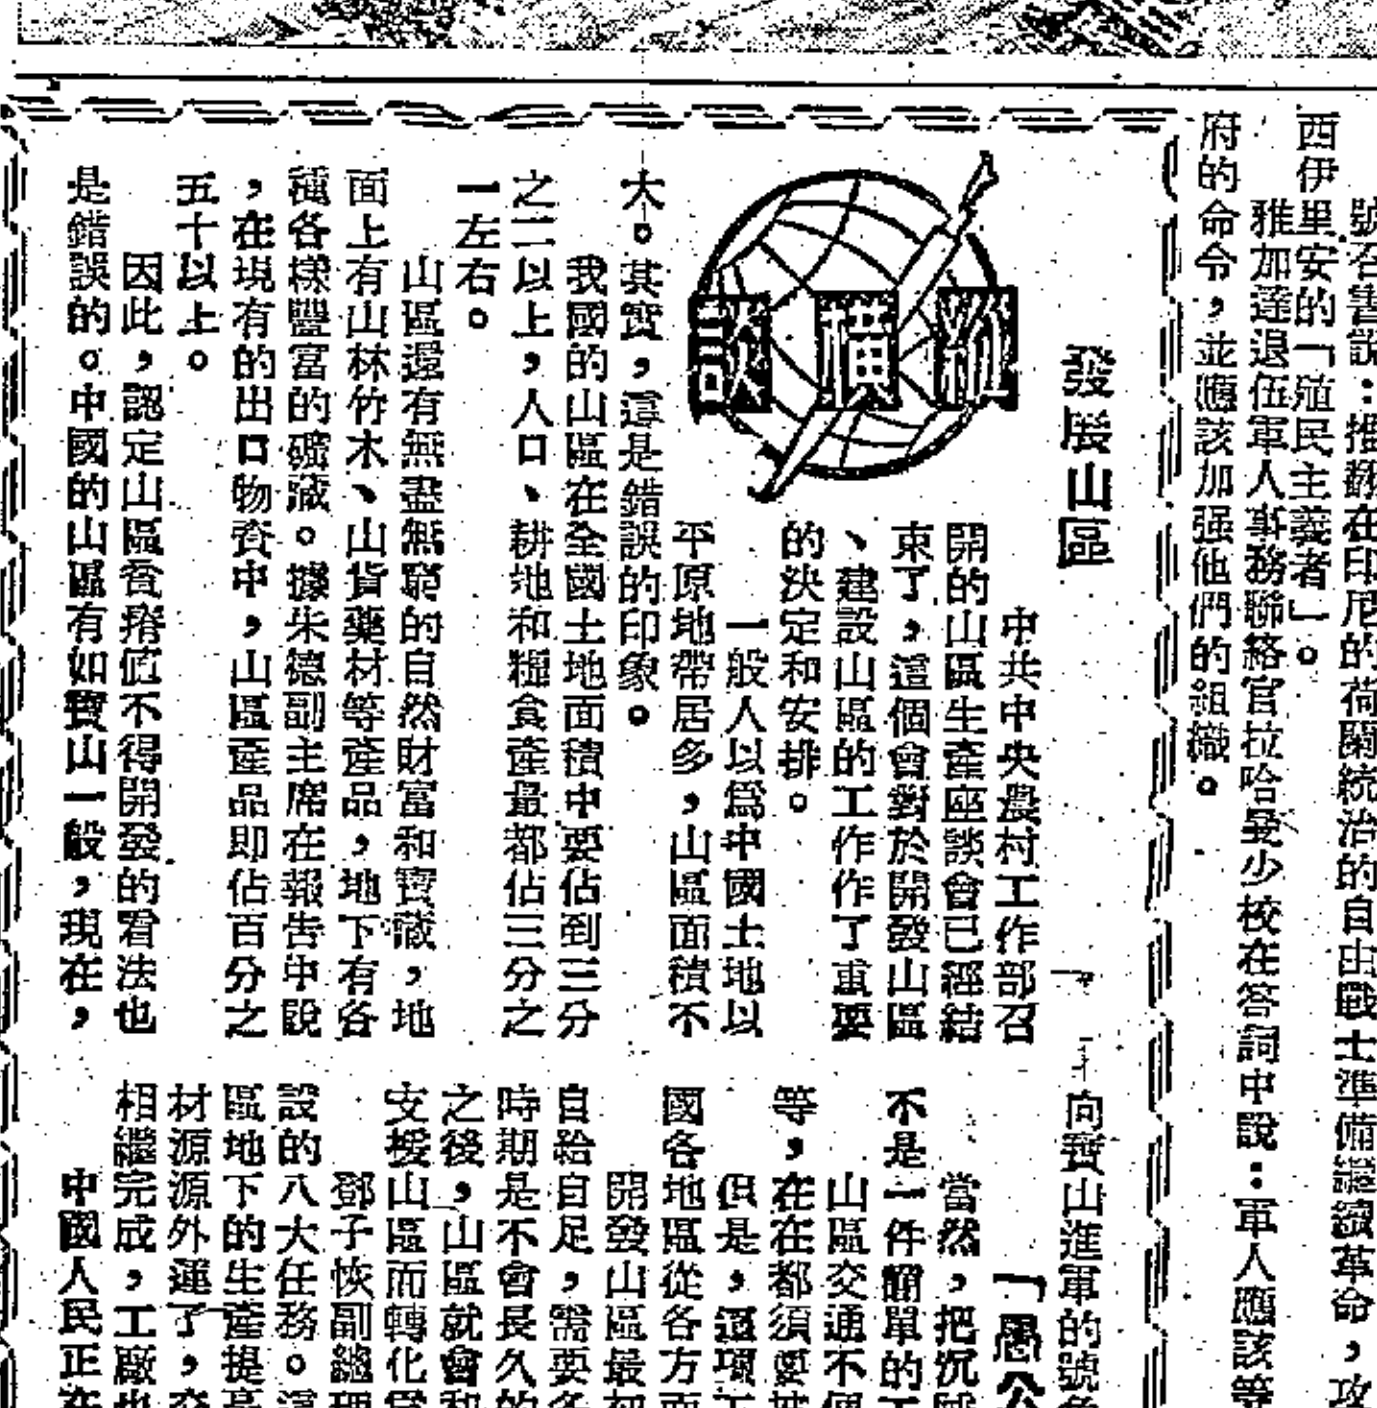 號召書說：推翻在印尼的荷蘭統治的自由戰士準備繼續革命，攻
西伊里安的「殖民主義者」。
雅加達退伍軍人事務聯絡官拉哈曼少校在答詞中說：軍人應該等
府的命令，並應該加强他們的組織。
發展山區
縱橫談
中共中央農村工作部召
開的山區生產座談會已經結
束了，這個會對於開發山區
、建設山區的工作作了重要
的決定和安排。
一般人以爲中國土地以
平原地帶居多，山區面積不
大。其實，這是錯誤的印象。
我國的山區在全國土地面積中要佔到三分
之二以上，人口、耕地和糧食產量都佔三分之
一左右。
山區還有無盡無窮的自然財富和寶藏，地
面上有山林竹木、山貨藥材等產品，地下有各
種各樣豐富的礦藏。據朱德副主席在報告中說
，在現有的出口物資中，山區產品即佔百分之
五十以上。
因此，認定山區貧瘠值不得開發的看法也
是錯誤的。中國的山區有如寶山一般，現在，
向寶山進軍的號
「愚公
當然，把沉
不是一件簡單的
山區交通不
等，在在都須要
但是，這項
國各地區從各方
開發山區最初
自給自足，需要
時期是不會長久的
之後，山區就會和
支援山區而轉化
鄧子恢副總理
設的八大任務。這
區地下的生產提高
材源源外運了，交
相繼完成，工廠也
中國人民正在